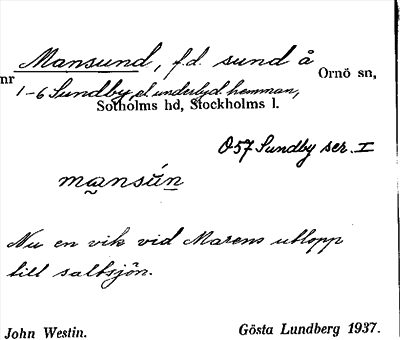 Mansund, f.d. sund å
nr Ornö sn,
1-6 Sundby, el. underlyd. hemman,
Sotholms hd, Stockholms l.
057 Sundby ser. I
mansún
Nu en vik vid Marens utlopp
till saltsjön.
John Westin. Gösta Lundberg 1937.